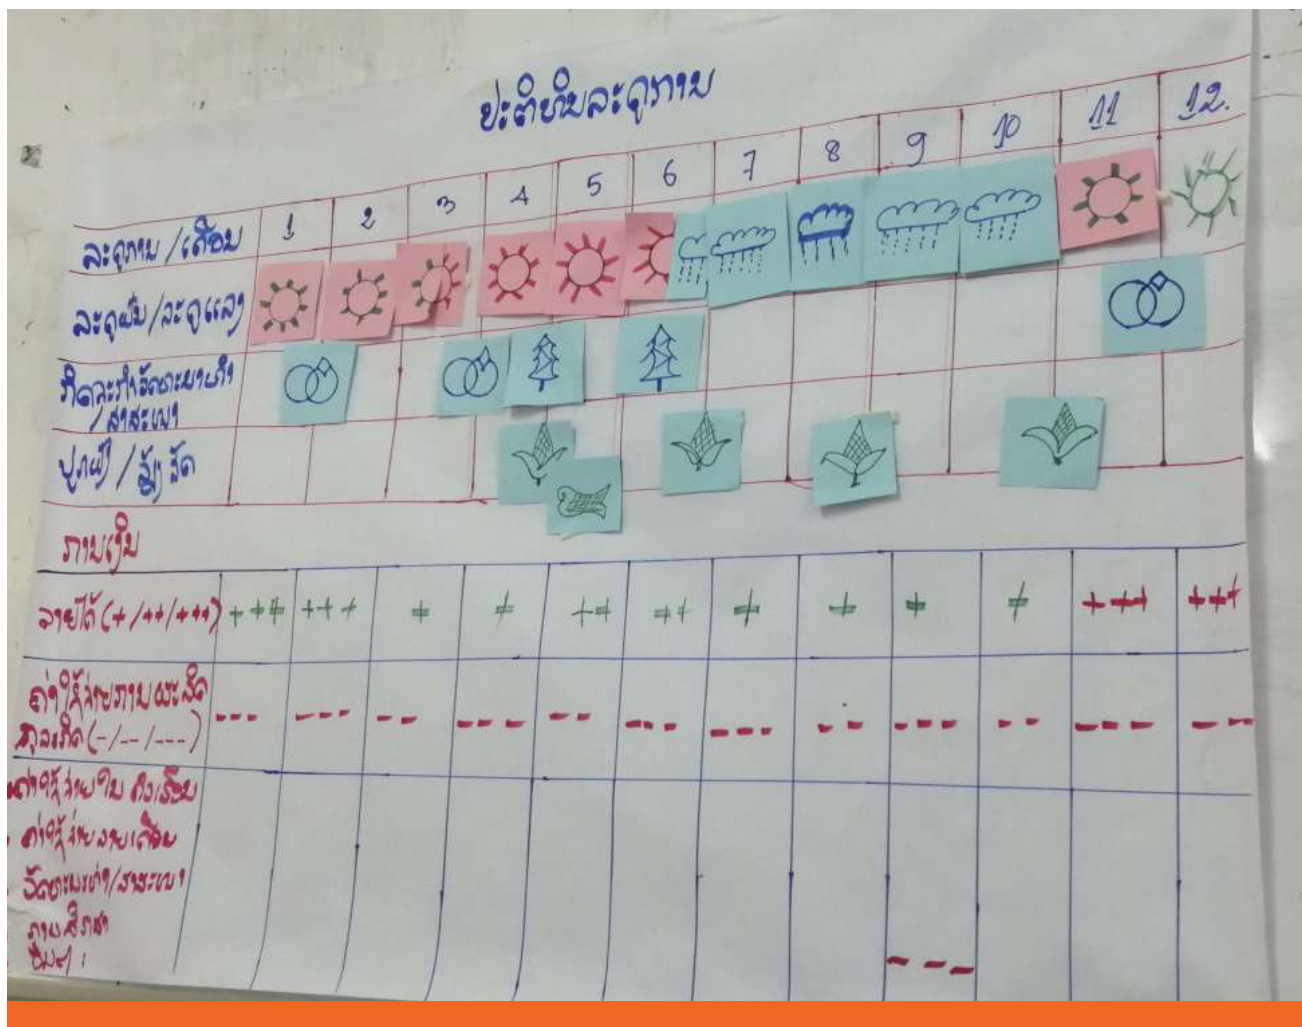 ປະຕິທິນລະດູການ
ລະດູການ/ເດືອນ 1 2 3 4 5 6 7 8 9 10 11 12.
ລະດູຝົນ/ລະດູແລ້ງ
ກິດຈະກຳວັດທະນາທຳ
/ສາສະໜາ
ປູກຝັງ/ລ້ຽງສັດ
ການເງິນ
ລາຍໄດ້ (+/++/+++) +++ +++ + + ++ ++ + + + + +++ +++
ຄ່າໃຊ້ຈ່າຍການຜະລິດ
ທຸລະກິດ (-/--/---) --- --- -- --- -- --- --- -- --- -- --- --
ຄ່າໃຊ້ຈ່າຍໃນຄົວເຮືອນ
ຄ່າໃຊ້ຈ່າຍລາຍເດືອນ
ວັດທະນະທຳ/ສາສະໜາ
ການສຶກສາ
ອື່ນໆ: ---